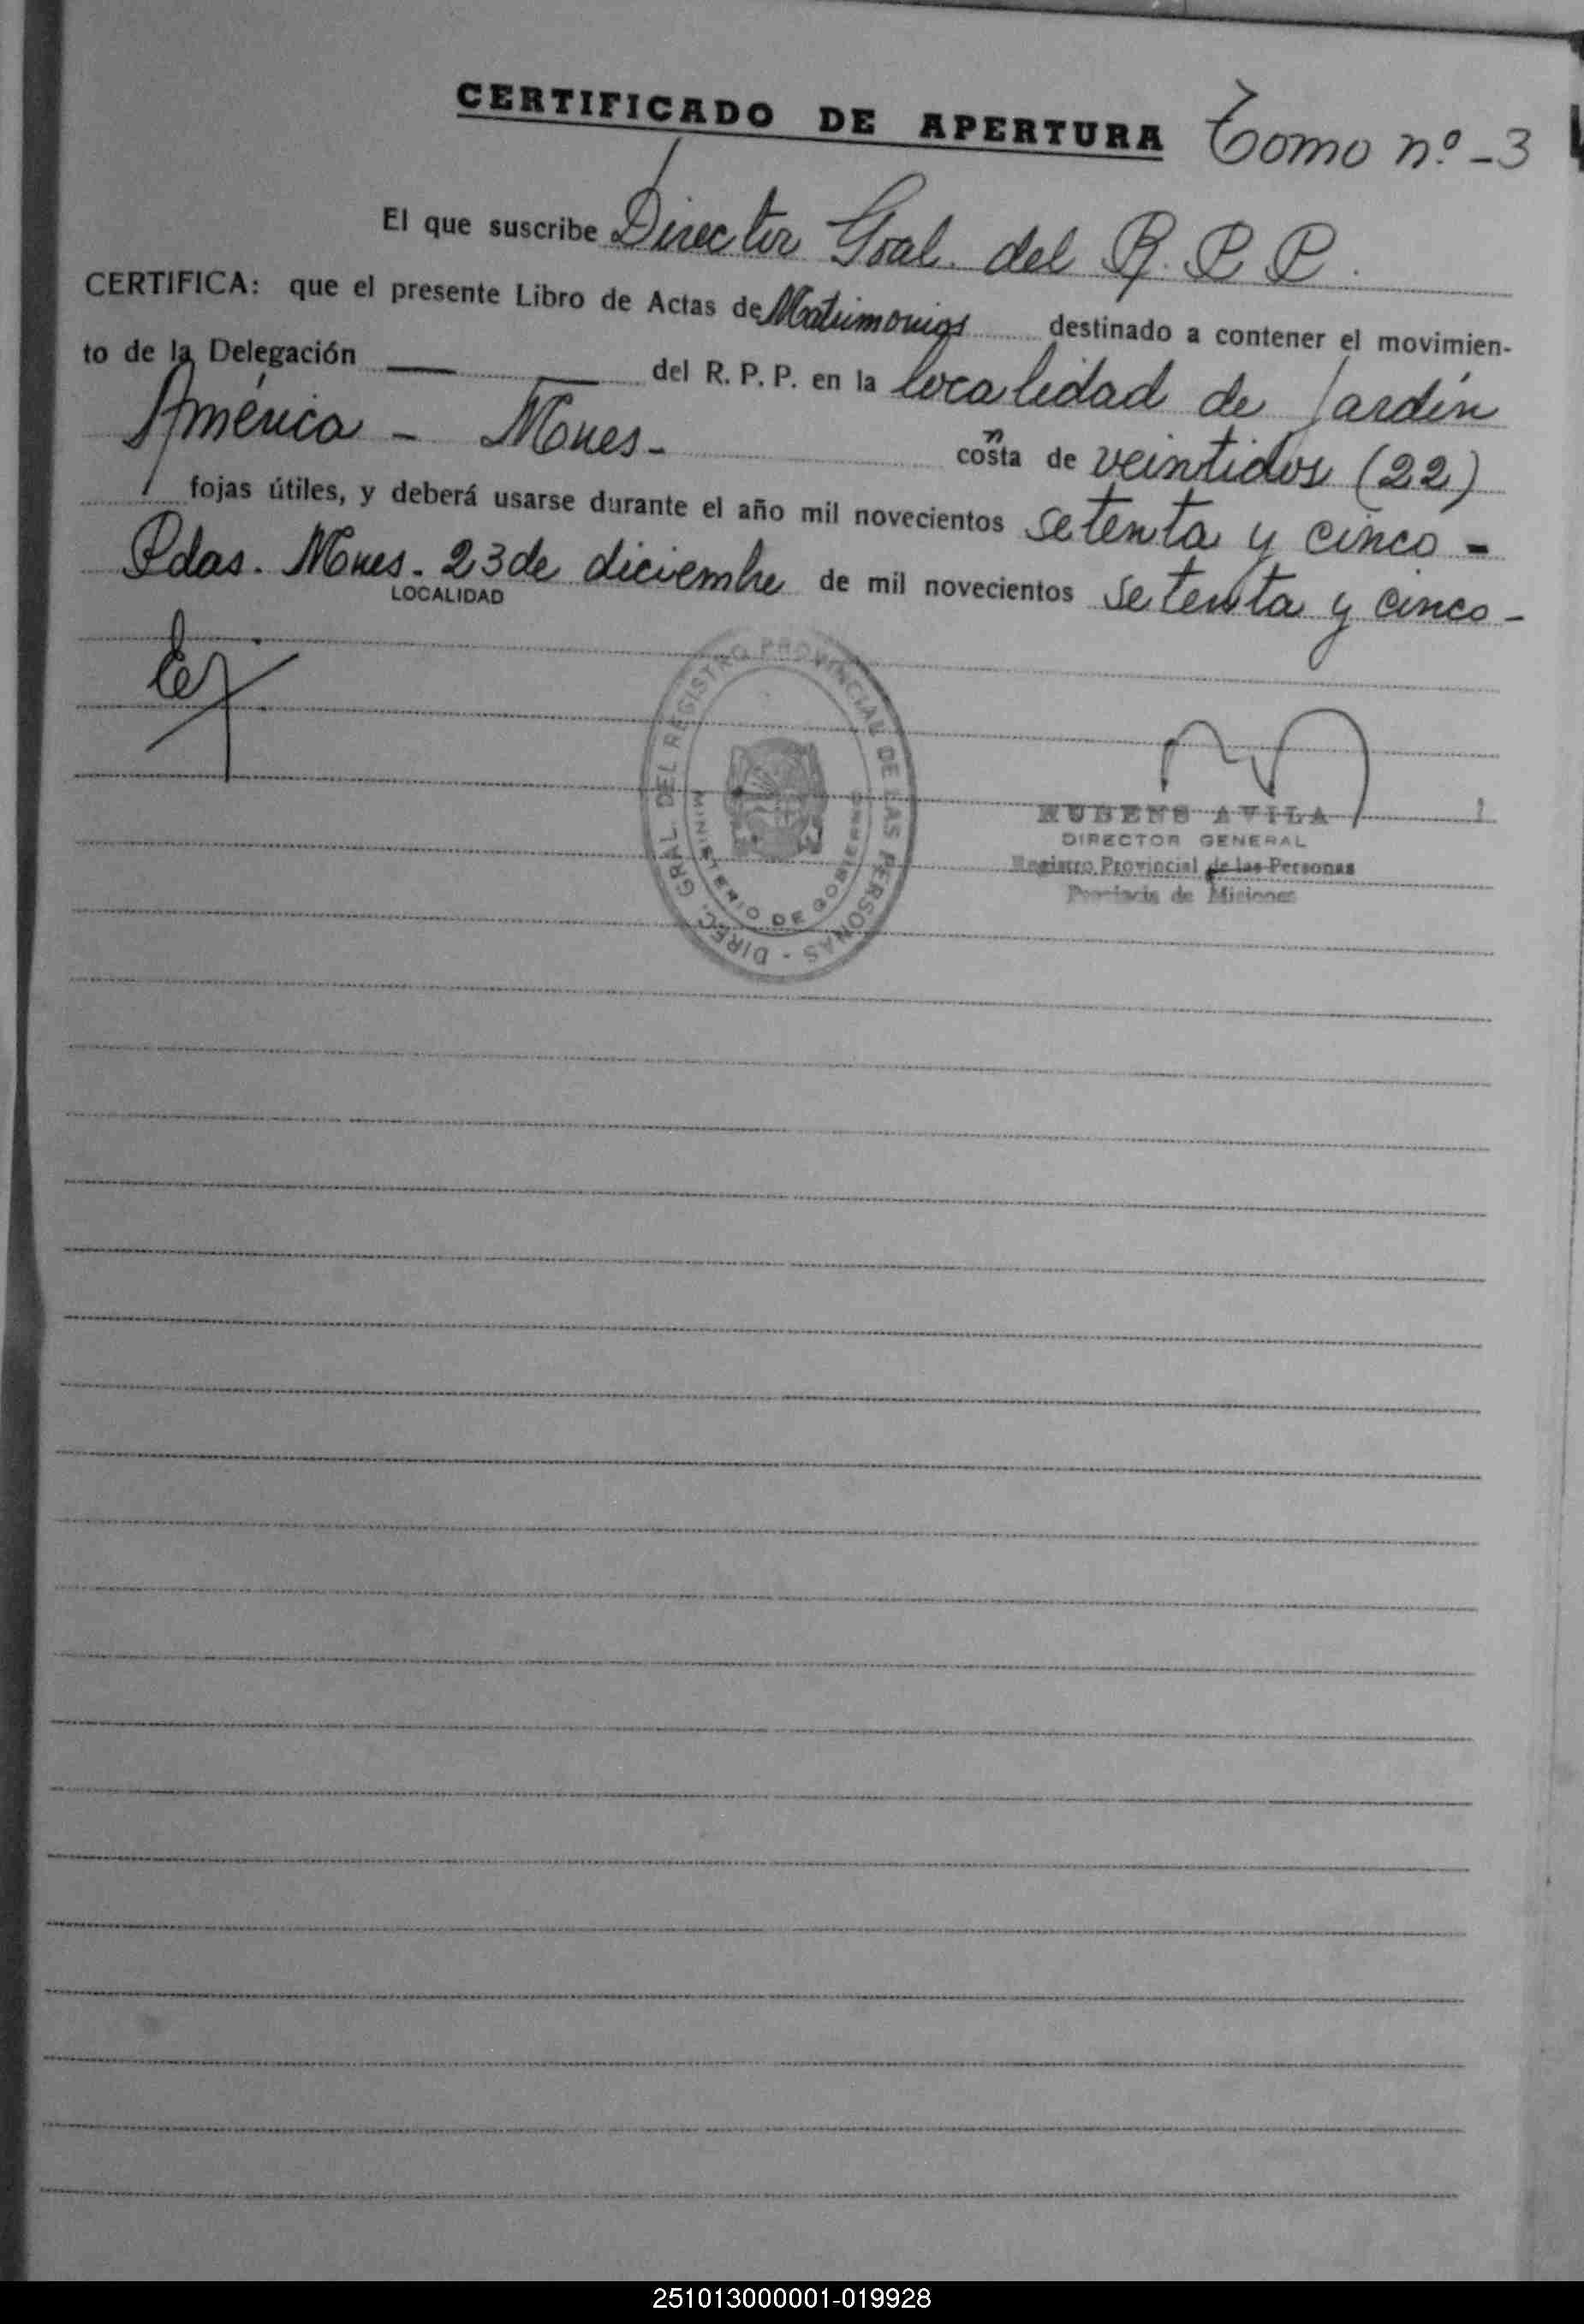 CERTIFICADO DE APERTURA Tomo nº-3
El que suscribe Director Gral. del R. P. P.
CERTIFICA: que el presente Libro de Actas de Matrimonios destinado a contener el movimien-
to de la Delegación del R. P. P. en la localidad de Jardín
América - Mnes- consta de veintidos (22)
fojas útiles, y deberá usarse durante el año mil novecientos setenta y cinco -
Pdas. Mnes. 23 de diciembre de mil novecientos setenta y cinco -
LOCALIDAD
DIREC. GRAL. DEL REGISTRO PROVINCIAL DE LAS PERSONAS -
MINISTERIO DE GOBIERNO
RUBENS AVILA
DIRECTOR GENERAL
Registro Provincial de las Personas
Provincia de Misiones
251013000001-019928